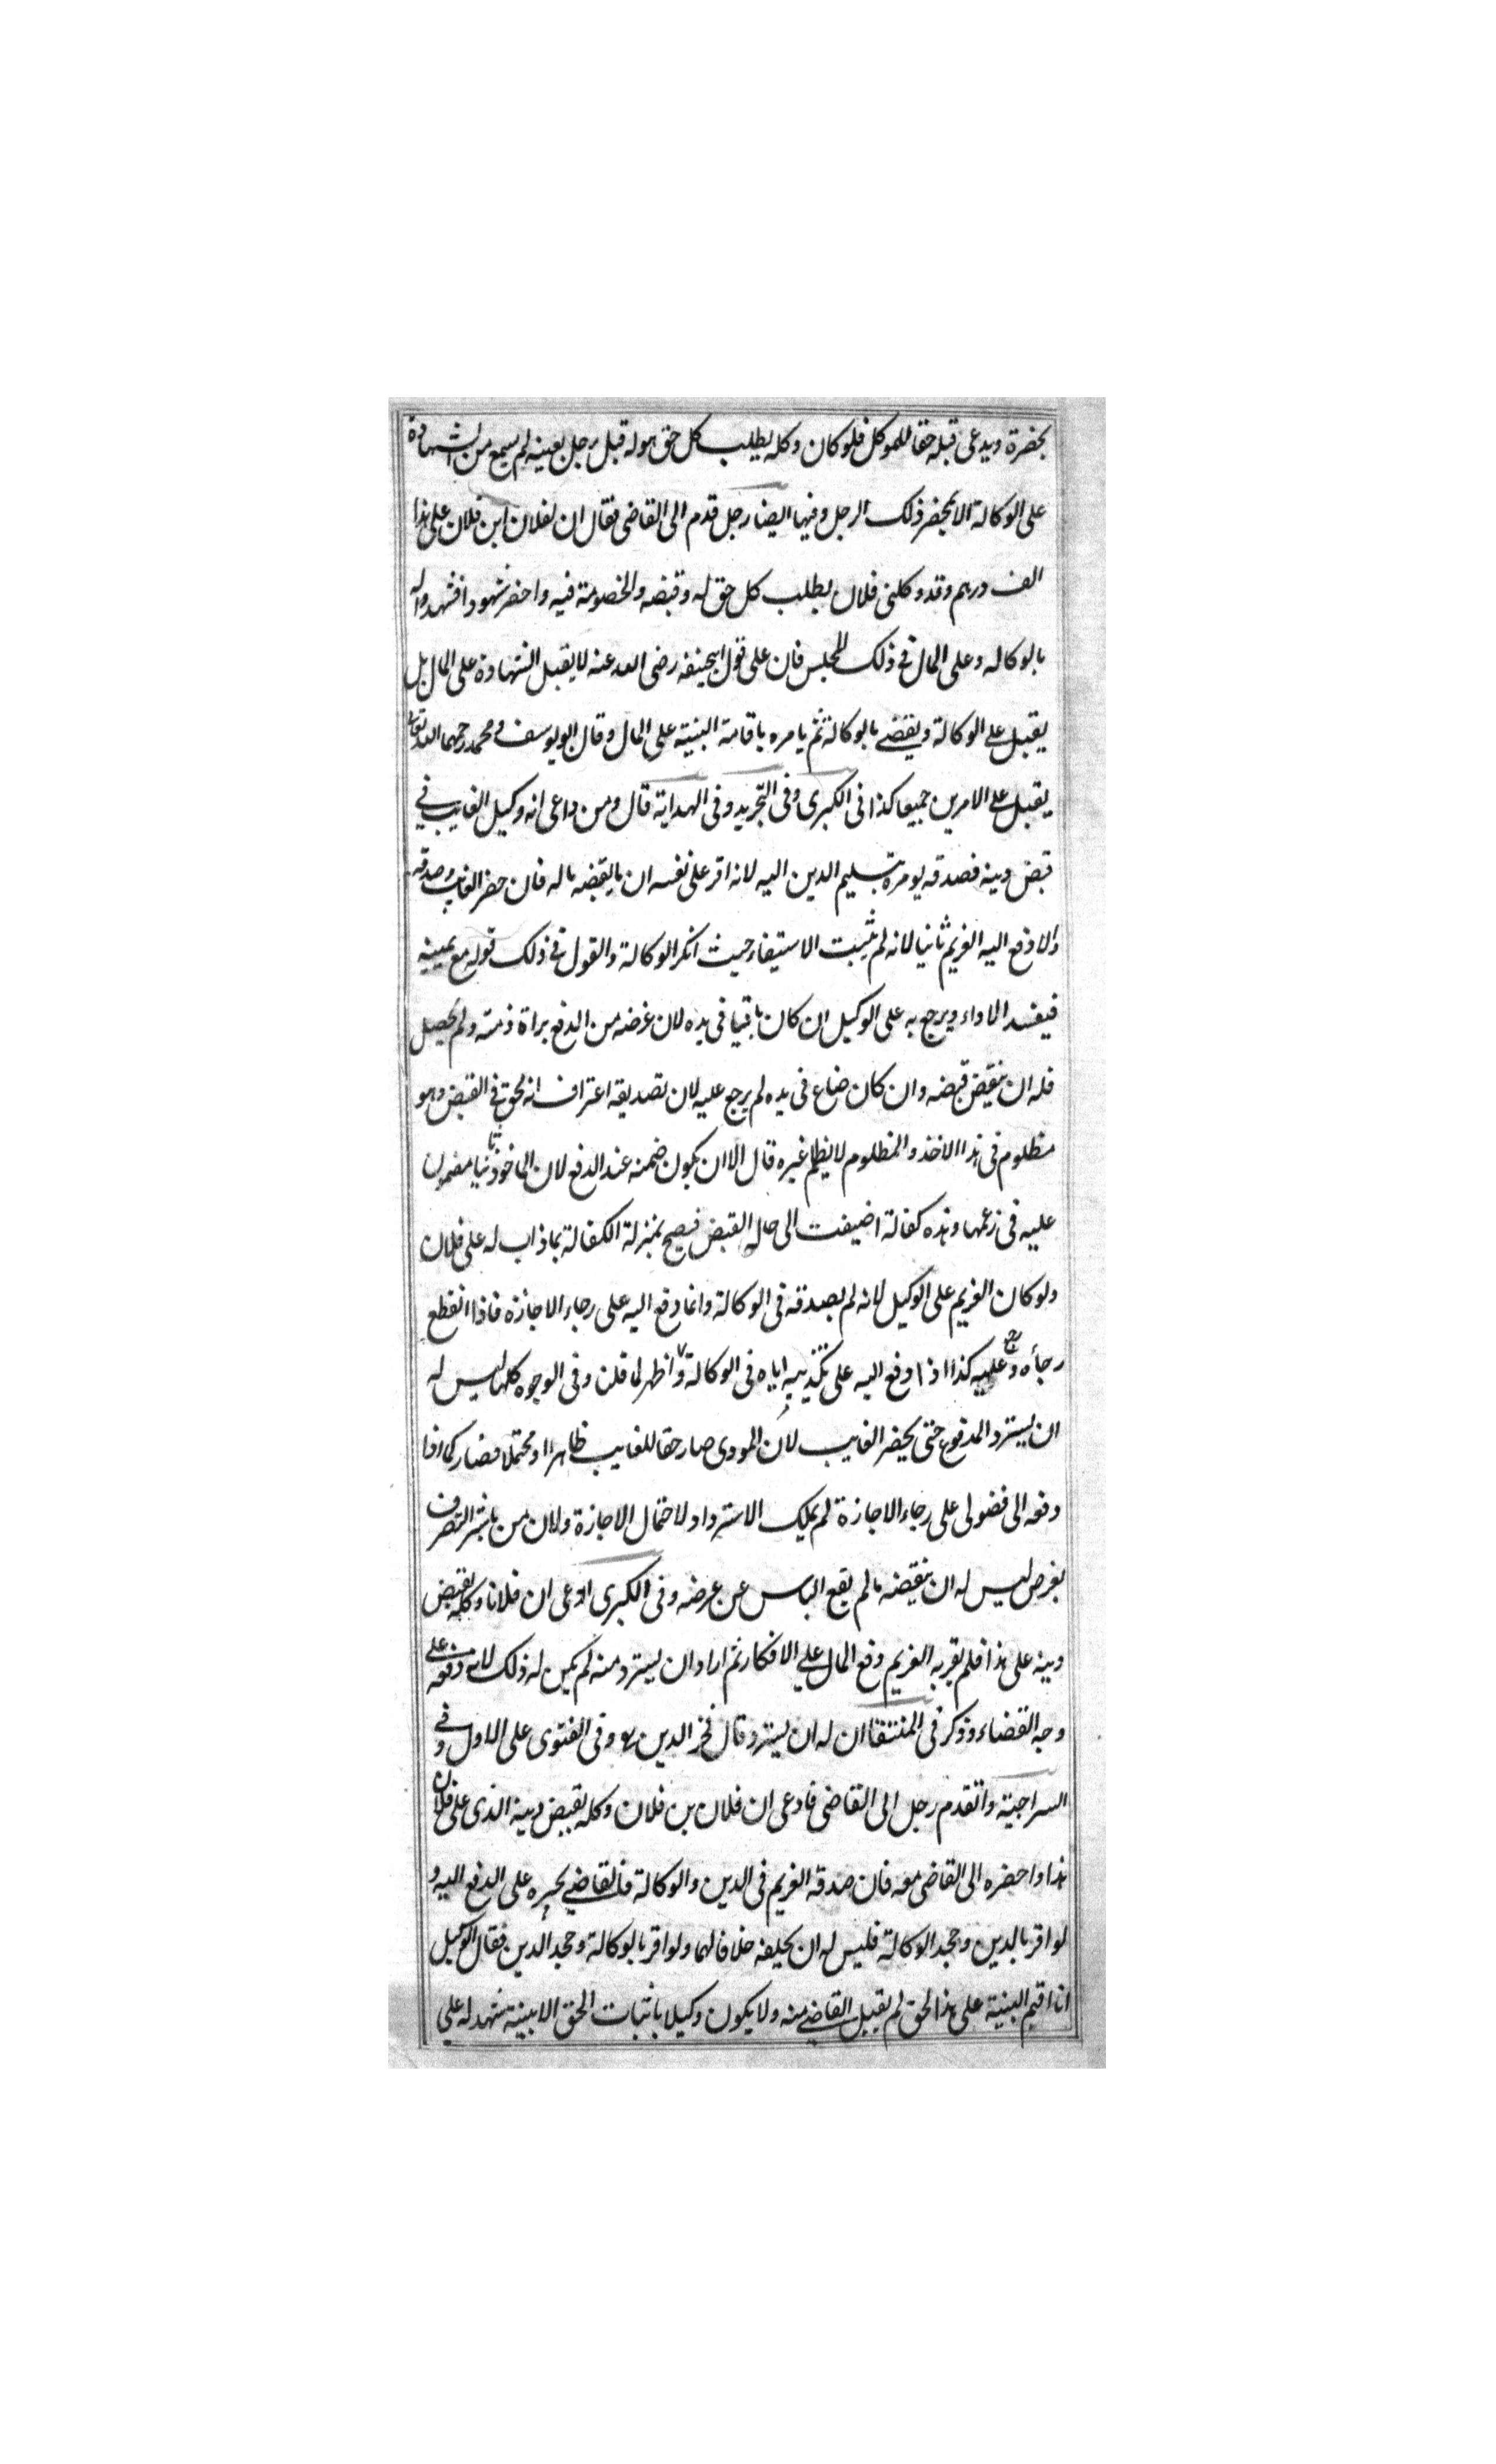 بحضرة ويدعى قبله حقا للموكل فلو كان وكله يطلب كل حق هو له قبل رجل بعينه لم يسمع من الشهادة
على الوكالة الا بمحضر ذلك الرجل وفيها ايضا رجل قدم الى القاضى فقال ان لفلان ابن فلان على هذا
الف درهم وقد وكلنى فلان بطلب كل حق له وقبضه والخصومة فيه واحضر شهودا فشهدوا له
بالوكاله وعلى المال فى ذلك المجلس فان على قول ابيحنيفه رضى الله عنه لا يقبل الشهادة على المال بل
يقبل على الوكالة ويقضى بالوكالة ثم يامره باقامة البينة على المال وقال ابو يوسف و محمد رحمهما الله تعالى
يقبل على الامرين جميعا كذا فى الكبرى وفى التجريد وفى الهداية قال ومن داعى انه وكيل الغايب فى
قبض دينه فصدقه يومر بتسليم الدين اليه لانه اقر على نفسه ان ما يقضه ماله فان حضر الغايب وصدقه
والا دفع اليه الغريم ثانيا لانه لم يثبت الاستيفاء حيث انكر الوكالة والقول فى ذلك قوله مع يمينه
فيفسد الاداء ويرجع به على الوكيل ان كان باقيا فى يده لان غرضه من الدفع براة ذمته ولم يحصل
فله ان ينقض قبضه وان كان ضاع فى يده لم يرجع عليه لان تصديقه اعتراف انه محق فى القبض وهو
مظلوم فى هذا الاخذ والمظلوم لا يظلم غيره قال الا ان يكون ضمنه عند الدفع لان الماخوذ ثانيا مضمون
عليه فى زعمهما وهذه كفالة اضيفت الى حالة القبض فيصح بمنزلة الكفالة بما ذاب له على فلان
ولو كان الغريم على الوكيل لانه لم يصدقه فى الوكالة وانما دفع اليه على رجاء الاجازه فاذا انقطع
رجاه رجع عليه كذا اذا دفع اليه على تكذيبه اياه فى الوكالة و اظهر لما قلن وفى الوجوه كلها ليس له
ان يسترد المدفوع حتى يحضر الغايب لان المودى صار حقا للغايب ظاهرا او محتملا فصار كما اذا
دفعه الى فضولى على رجاء الاجازة لم يملك الاسترداد لاحتمال الاجازة ولان من باشر التصرف
بغرض ليس له ان ينقضه ما لم يقع الياس عن غرضه وفى الكبرى ادعى ان فلانا وكله بقبض
دينه على هذا فلم يقر به الغريم دفع المال على الانكار ثم اراد ان يسترد منه لم يكن له ذلك لانه دفعه على
وجه القضاء وذكر فى المنتقا ان له ان يسترد وقال فخر الدين وفى الفتوى على الاول وفى
السراجية واتقدم رجل الى القاضى فادعى ان فلان بن فلان وكله بقبض دينه الذى على فلان
هذا واحضره الى القاضى معه فان صدقه الغريم فى الدين والوكالة فالقاضى يجبره على الدفع اليه و
لو اقر بالدين وجحد الوكالة فليس له ان يحلفه خلافا لهما ولو اقر بالوكالة وجحد الدين فقال الوكيل
انا اقيم البينة على هذا الحق لم يقبل القاضى منه ولا يكون وكيلا باثبات الحق الا ببينة تشهد له على